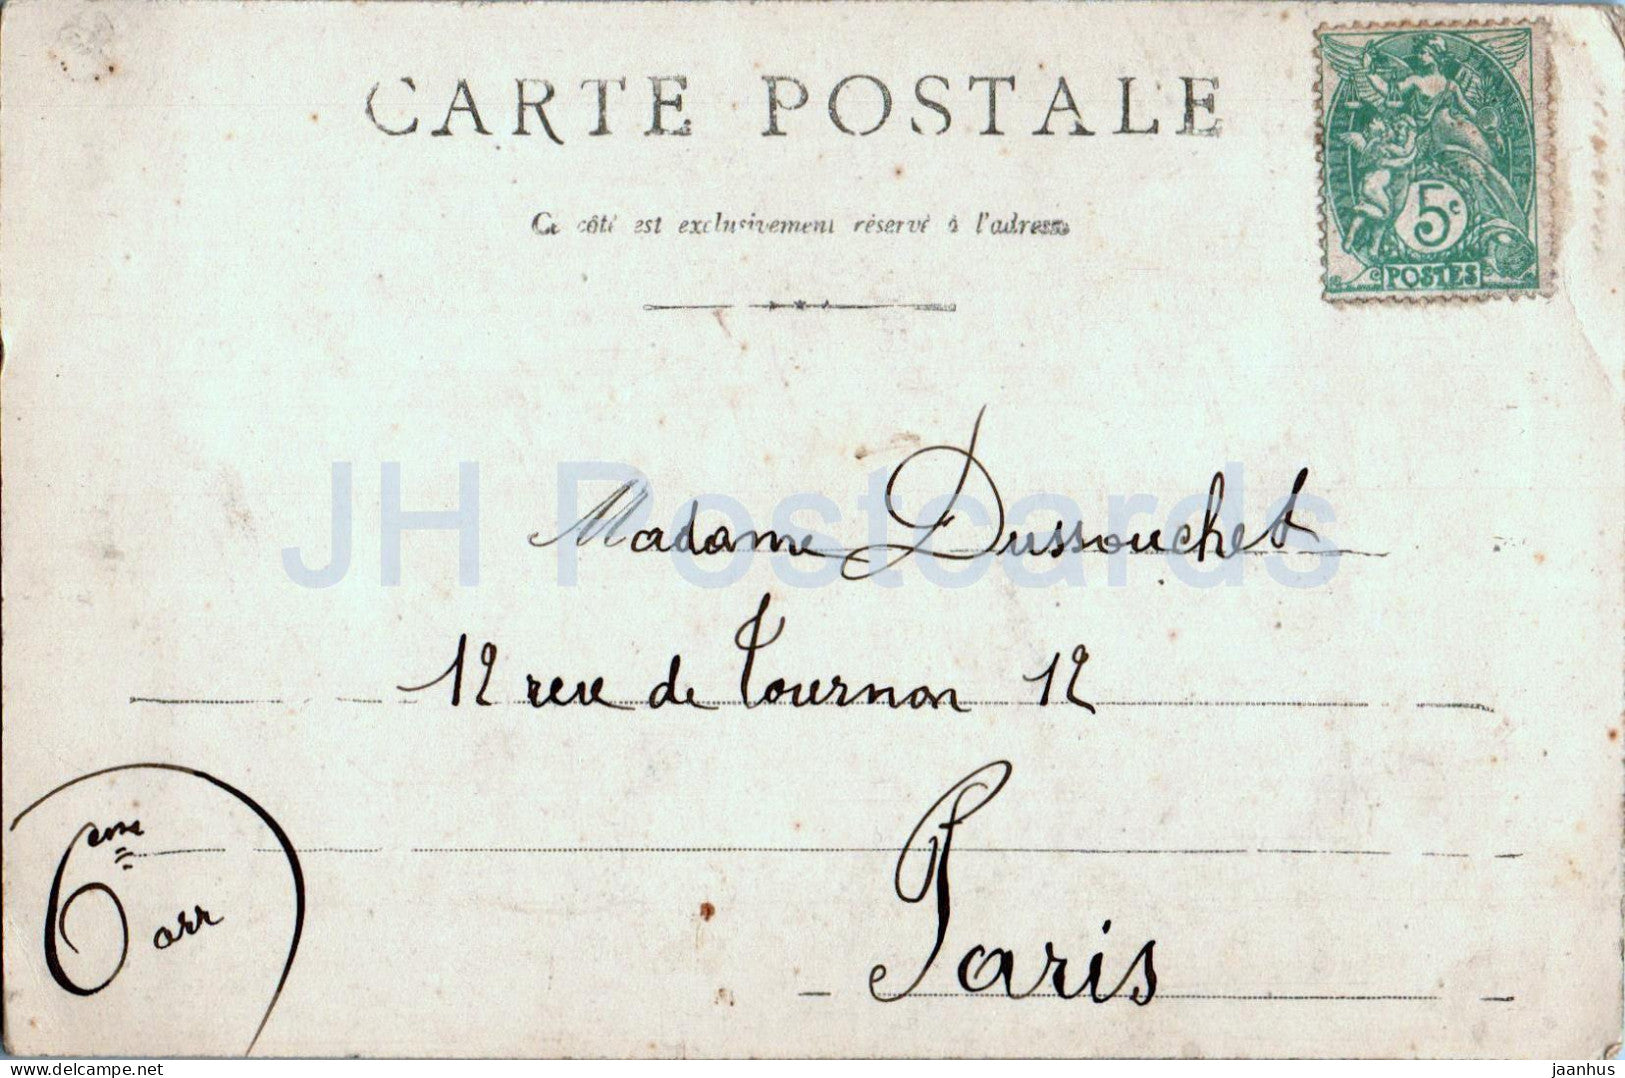 CARTE POSTALE
Ce côté est exclusivement réservé à l'adresse
5c
POSTES
JH Postcards
Madame Dussouchet
12 rue de Tournon 12
Paris
6eme arr
delcampe.net
jaanhus